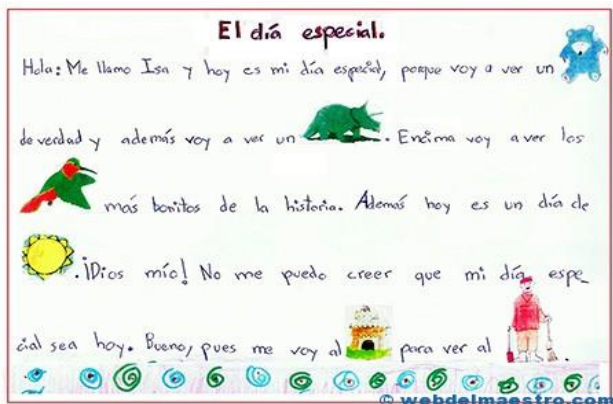 El día especial.
Hola: Me llamo Isa y hoy es mi día especial, porque voy a ver un
de verdad y además voy a ver un . Encima voy a ver los
más bonitos de la historia. Además hoy es un día de
. ¡Dios mío! No me puedo creer que mi día espe_
cial sea hoy. Bueno, pues me voy al para ver al .
© webdelmaestro.com